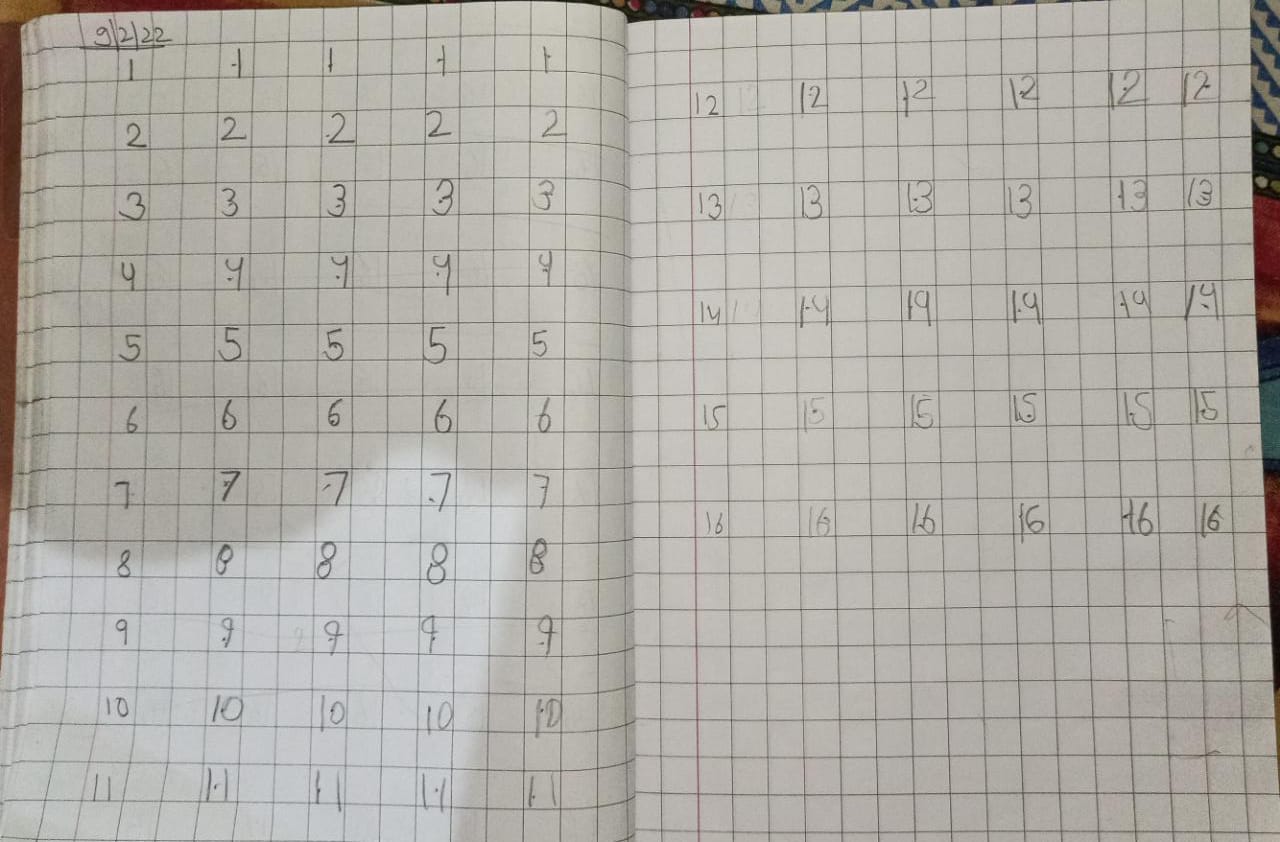 9/2/22
1 1 1 1 1
2 2 2 2 2
3 3 3 3 3
4 4 4 4 4
5 5 5 5 5
6 6 6 6 6
7 7 7 7 7
8 8 8 8 8
9 9 9 9 9
10 10 10 10 10
11 11 11 11 11
12 12 12 12 12 12
13 13 13 13 13 13
14 14 14 14 14 14
15 15 15 15 15 15
16 16 16 16 16 16